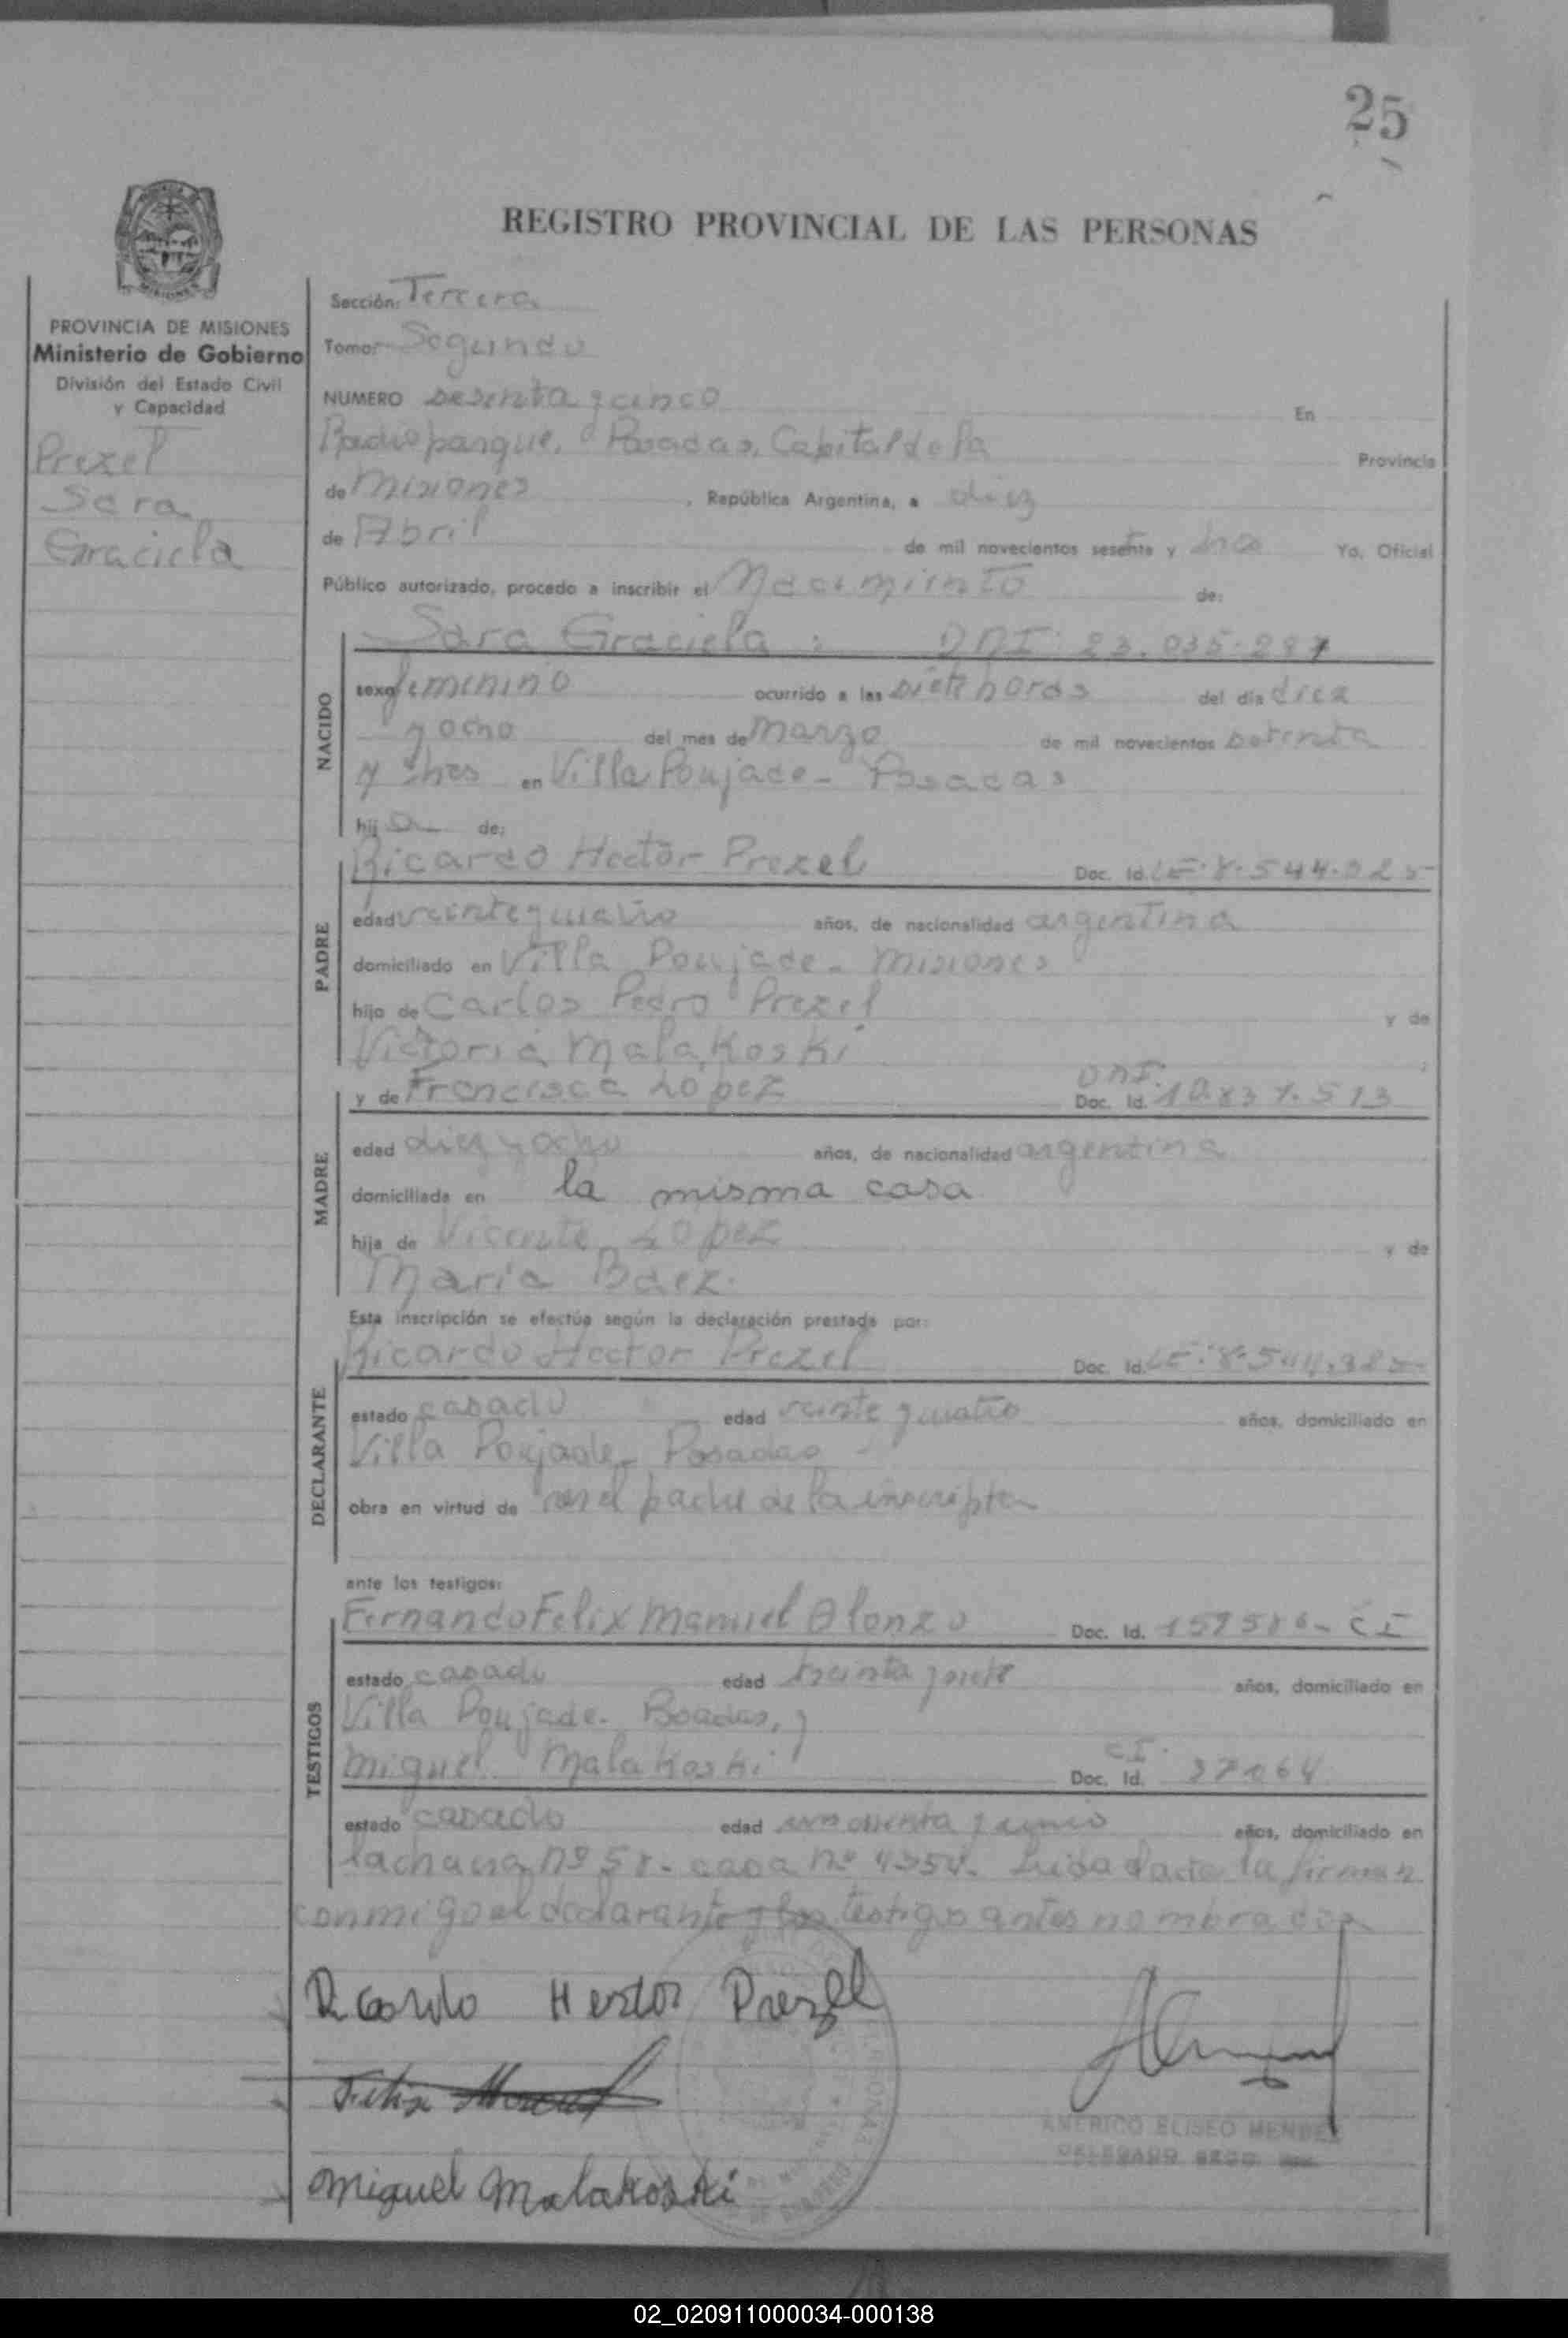 25
REGISTRO PROVINCIAL DE LAS PERSONAS
PROVINCIA DE MISIONES
Ministerio de Gobierno
División del Estado Civil
y Capacidad
Prezel
Sara
Graciela
Sección: Tercera
Tomo: Segundo
NUMERO sesenta y cinco En
Radioparque, Posadas, Capital de la Provincia
de Misiones, República Argentina, a diez
de Abril de mil novecientos sesenta y tres Yo, Oficial
Público autorizado, procedo a inscribir el Nacimiento de:
Sara Graciela : DNI 23.035.287
NACIDO
sexo femenino ocurrido a las siete horas del día diez
y ocho del mes de Marzo de mil novecientos setenta
y tres en Villa Poujade - Posadas
hija de:
PADRE
Ricardo Hector Prezel Doc. Id. LE 8.544.985
edad veinte y cuatro años, de nacionalidad argentina
domiciliado en Villa Poujade - Misiones
hijo de Carlos Pedro Prezel y de
Victoria Malakoski
MADRE
y de Francisca Lopez DNI. Doc. Id. 10.837.513
edad diez y ocho años, de nacionalidad argentina
domiciliada en la misma casa
hija de Vicente Lopez y de
Maria Baez.
Esta inscripción se efectúa según la declaración prestada por:
DECLARANTE
Ricardo Hector Prezel Doc. Id. LE. 8.544.985
estado casado edad veinte y cuatro años, domiciliado en
Villa Poujade - Posadas -
obra en virtud de ser el padre de la inscripta
ante los testigos:
TESTIGOS
Fernando Felix Manuel Alonzo Doc. Id. CI
estado casado edad treinta y siete años, domiciliado en
Villa Poujade - Posadas, y
Miguel Malakoski CI. Doc. Id. 37064
estado casado edad cincuenta y cinco años, domiciliado en
la chacra nº 58 - casa nº 4354. Leida el acta la firman
conmigo el declarante y los testigos antes nombrados
Ricardo Hector Prezel
Felix Manuel
Miguel Malakoski
AMERICO ELISEO MENDEZ
DELEGADO
02_020911000034-000138